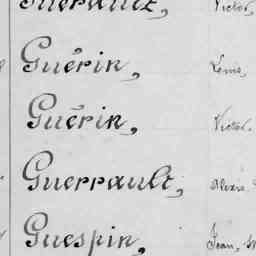 Guérault, Victor,
Guérin, Louis,
Guérin, Victor,
Guerrault, Alexis
Guespin, Jean,